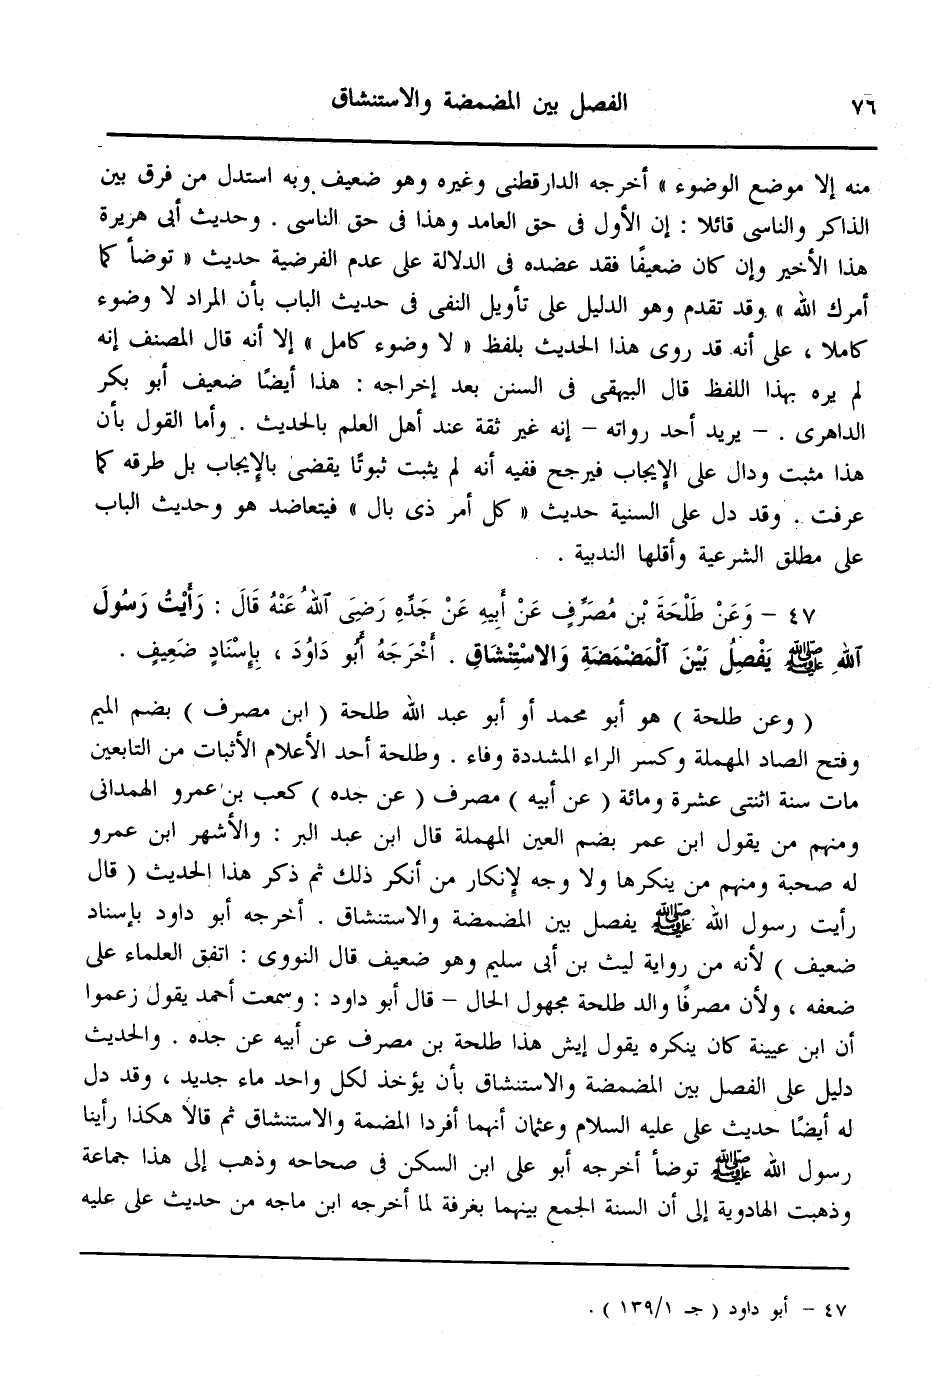 ٧٦ الفصل بين المضمضة والاستنشاق
منه إلا موضع الوضوء » أخرجه الدارقطنى وغيره وهو ضعيف وبه استدل من فرق بين
الذاكر والناسى قائلا : إن الأول فى حق العامد وهذا فى حق الناسى . وحديث أبى هريرة
هذا الأخير وإن كان ضعيفًا فقد عضده فى الدلالة على عدم الفرضية حديث « توضأ كما
أمرك الله » وقد تقدم وهو الدليل على تأويل النفى فى حديث الباب بأن المراد لا وضوء
كاملا ، على أنه قد روى هذا الحديث بلفظ « لا وضوء كامل » إلا أنه قال المصنف إنه
لم يره بهذا اللفظ قال البيهقى فى السنن بعد إخراجه : هذا أيضًا ضعيف أبو بكر
الداهرى . – يريد أحد رواته – إنه غير ثقة عند أهل العلم بالحديث . وأما القول بأن
هذا مثبت ودال على الإيجاب فيرجح ففيه أنه لم يثبت ثبوتًا يقضى بالإيجاب بل طرقه كما
عرفت . وقد دل على السنية حديث « كل أمر ذى بال » فيتعاضد هو وحديث الباب
على مطلق الشرعية وأقلها الندبية .
٤٧ – وَعَنْ طَلْحَةَ بْنِ مُصَرِّفٍ عَنْ أَبِيهِ عَنْ جَدِّهِ رَضِيَ ٱللهُ عَنْهُ قَالَ : رَأَيْتُ رَسُولَ
ٱللهِ ﷺ يَفْصِلُ بَيْنَ ٱلْمَضْمَضَةِ وَالاسْتِنْشَاقِ . أَخْرَجَهُ أَبُو دَاوُدَ ، بِإِسْنَادٍ ضَعِيفٍ .
( وعن طلحة ) هو أبو محمد أو أبو عبد الله طلحة ( ابن مصرف ) بضم الميم
وفتح الصاد المهملة وكسر الراء المشددة وفاء . وطلحة أحد الأعلام الأثبات من التابعين
مات سنة اثنتى عشرة ومائة ( عن أبيه ) مصرف ( عن جده ) كعب بن عمرو الهمدانى
ومنهم من يقول ابن عمر بضم العين المهملة قال ابن عبد البر : والأشهر ابن عمرو
له صحبة ومنهم من ينكرها ولا وجه لإنكار من أنكر ذلك ثم ذكر هذا الحديث ( قال
رأيت رسول الله ﷺ يفصل بين المضمضة والاستنشاق . أخرجه أبو داود بإسناد
ضعيف ) لأنه من رواية ليث بن أبى سليم وهو ضعيف قال النووى : اتفق العلماء على
ضعفه ، ولأن مصرفًا والد طلحة مجهول الحال – قال أبو داود : وسمعت أحمد يقول زعموا
أن ابن عيينة كان ينكره يقول إيش هذا طلحة بن مصرف عن أبيه عن جده . والحديث
دليل على الفصل بين المضمضة والاستنشاق بأن يؤخذ لكل واحد ماء جديد ، وقد دل
له أيضًا حديث على عليه السلام وعثمان أنهما أفردا المضمة والاستنشاق ثم قالا هكذا رأينا
رسول الله ﷺ توضأ أخرجه أبو على ابن السكن فى صحاحه وذهب إلى هذا جماعة
وذهبت الهادوية إلى أن السنة الجمع بينهما بغرفة لما أخرجه ابن ماجه من حديث على عليه
٤٧ – أبو داود ( جـ ١٣٩/١ ) .